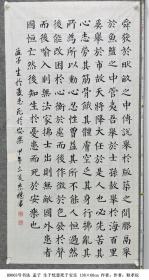 舜發於畎畝之中傅說舉於版築之間膠鬲舉
於魚鹽之中管夷吾舉於士孫叔敖舉於海百里
奚舉於市故天將降大任於是人也必先苦其
心志勞其筋骨餓其體膚空乏其身行拂亂其
所為所以動心忍性曾益其所不能人恒過然
後能改困於心衡於慮而後作徵於色發於聲
而後喻入則無法家拂士出則無敵國外患者
國恒亡然後知生於憂患而死於安樂也
孟子生於憂患死於安樂
号书法 孟子 生于忧患死于安乐 138×68cm 作者：作者：